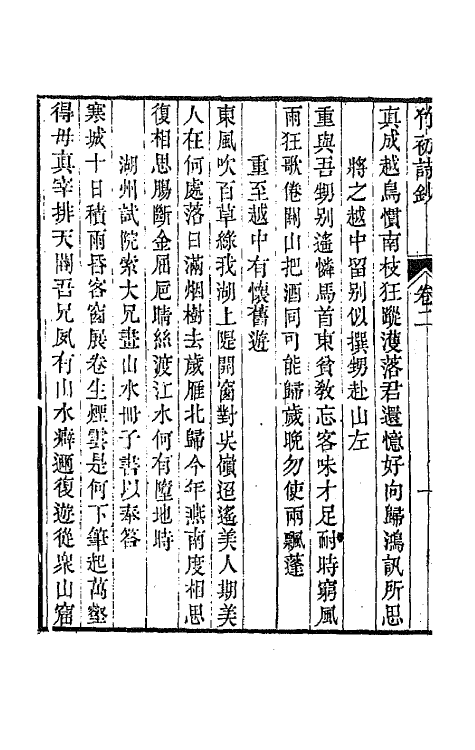 竹初詩鈔 卷二 一
真成越鳥慣南枝狂蹤濩落君還憶好向歸鴻訊所思
將之越中留别似撰甥赴山左
重與吾甥别遙憐馬首東貧教忘客味才足耐時窮風
雨狂歌倦關山把酒同可能歸歲晚勿使兩飄蓬
重至越中有懷舊遊
東風吹百草綠我湖上隄開窗對吳嶺迢遙美人期美
人在何處落日滿烟樹去歲雁北歸今年燕南度相思
復相思腸斷金屈巵晴絲渡江水何有墮地時
湖州試院索大兄畫山水冊子書以奉答
寒城十日積雨昏客窗展卷生煙雲是何下筆起萬壑
得毋真宰排天閽吾兄夙有山水癖邇復遊從衆山窟